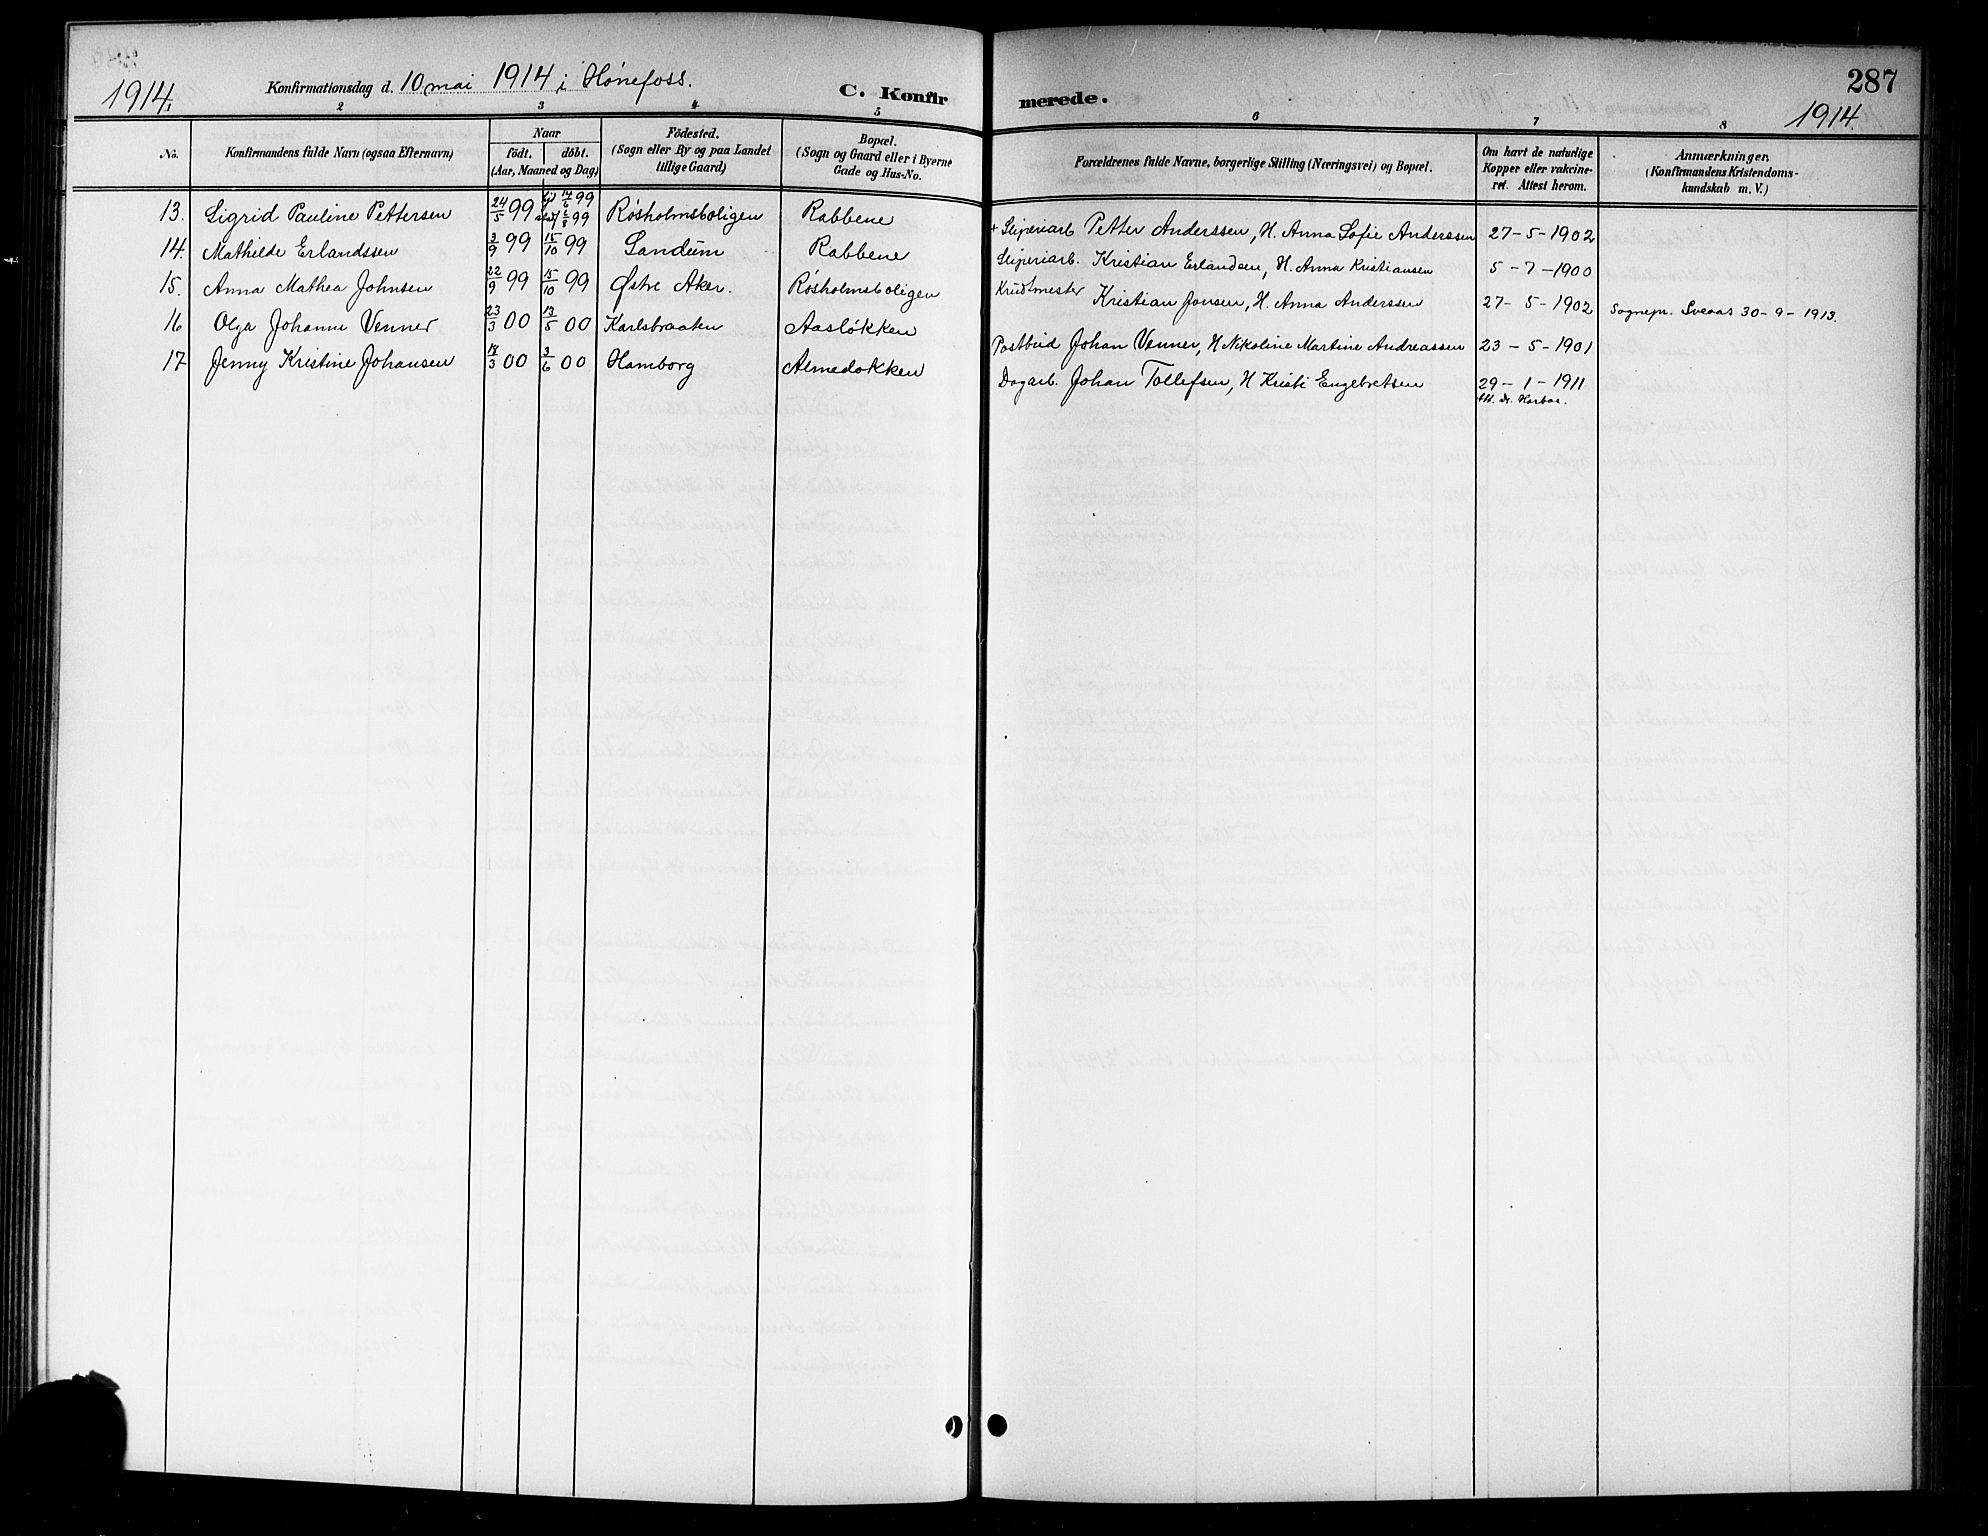 1914. Konfirmationsdag d. 10 mai 1914 i Hønefoss. C. Konfirmerede. 287
1914.
1 2 3 4 5 6 7 8
No. Konfirmandens fulde Navn (ogsaa Efternavn) Naar født. døbt. (Aar, Maaned og Dag.) Fødested. (Sogn eller By og paa Landet tillige Gaard) Bopæl. (Sogn og Gaard eller i Byerne Gade og Hus-No. Forældrenes fulde Navne, borgerlige Stilling (Næringsvei) og Bopæl. Om havt de naturlige Kopper eller vakcineret. Attest herom. Anmærkninger. (Konfirmandens Kristendomskundskab m. V.)
13. Sigrid Pauline Pettersen 24/5 99 14/6 99 99 Røsholmsboligen Rabbene + Sliperiarb Petter Anderssen, H. Anna Sofie Anderssen 27-5-1902
14. Mathilde Erlandssen 3/9 99 15/10 99 Sandum Rabbene Sliperiarb. Kristian Erlandsen, H. Anna Kristiansen 5-7-1900
15. Anna Mathea Johnsen 22/9 99 15/10 99 Østre Aker. Røsholmsboligen Krudtmester Kristian Jonsen, H. Anna Anderssen 27-5-1902 Sognepr. Sveaas 30-9-1913.
16 Olga Johanne Venner 23/3 00 13/5 00 Karlsbraaten Aasløkken Postbud Johan Venner, H Nikoline Martine Andreassen 23-5-1901
17 Jenny Kristine Johansen 18/3 00 3/6 00 Hamborg Almeløkken Dagarb. Johan Tollefsen, H Kristi Engebretsen 29-1-1911
Att. Dr. Harboe.